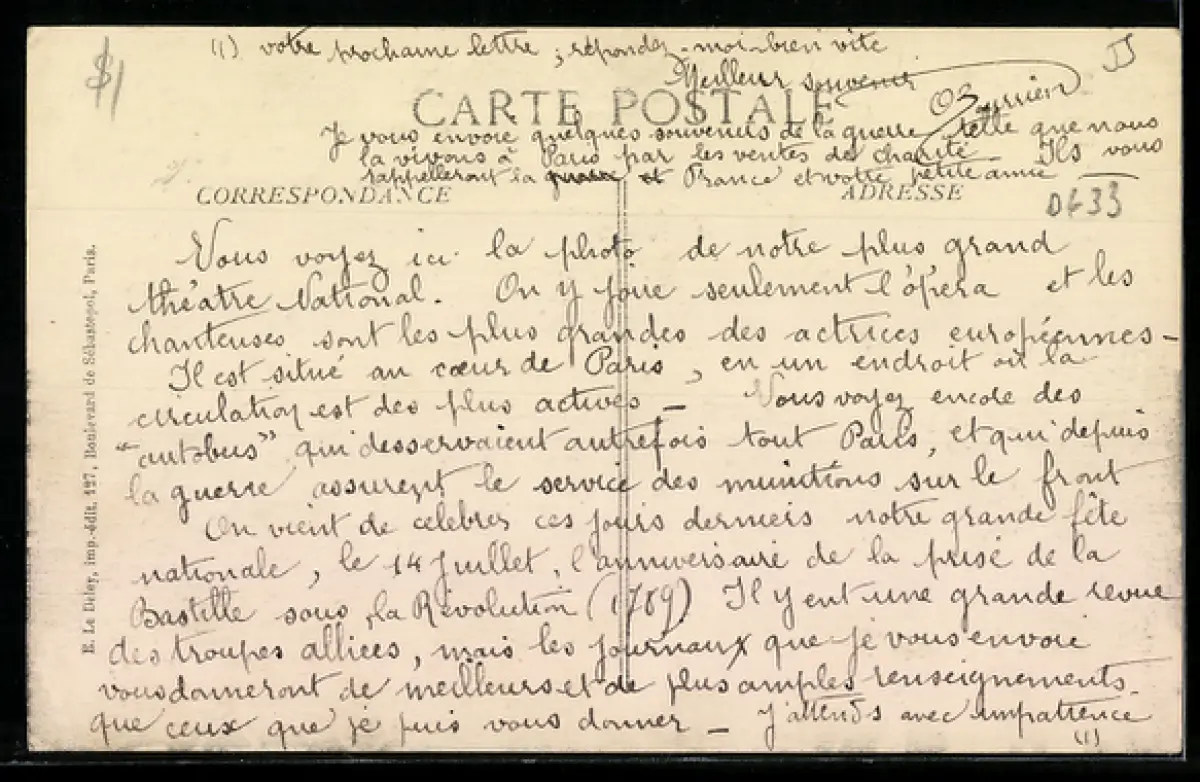 (1) votre prochaine lettre ; répondez-moi bien vite
Meilleur souvenir
II
CARTE POSTALE
Je vous envoie quelques souvenirs de la guerre telle que nous
la vivons à Paris par les ventes de charité - Ils vous
rappelleront la France et votre petite amie -
CORRESPONDANCE
ADRESSE
D633
Vous voyez ici la photo de notre plus grand
théâtre National. On y joue seulement l'opéra et les
chanteuses sont les plus grandes des actrices européennes -
Il est situé au cœur de Paris, en un endroit où la
circulation est des plus actives - Vous voyez encore des
"autobus" qui desservaient autrefois tout Paris, et qui depuis
la guerre assurent le service des munitions sur le front
On vient de célébrer ces jours derniers notre grande fête
nationale, le 14 Juillet, l'anniversaire de la prise de la
Bastille sous la Révolution (1789) Il y eut une grande revue
des troupes alliées, mais les journaux que je vous envoie
vous donneront de meilleurs et de plus amples renseignements
que ceux que je puis vous donner - J'attends avec impatience
(1)
E. Le Deley, imp.-édit. 127, Boulevard de Sébastopol, Paris.